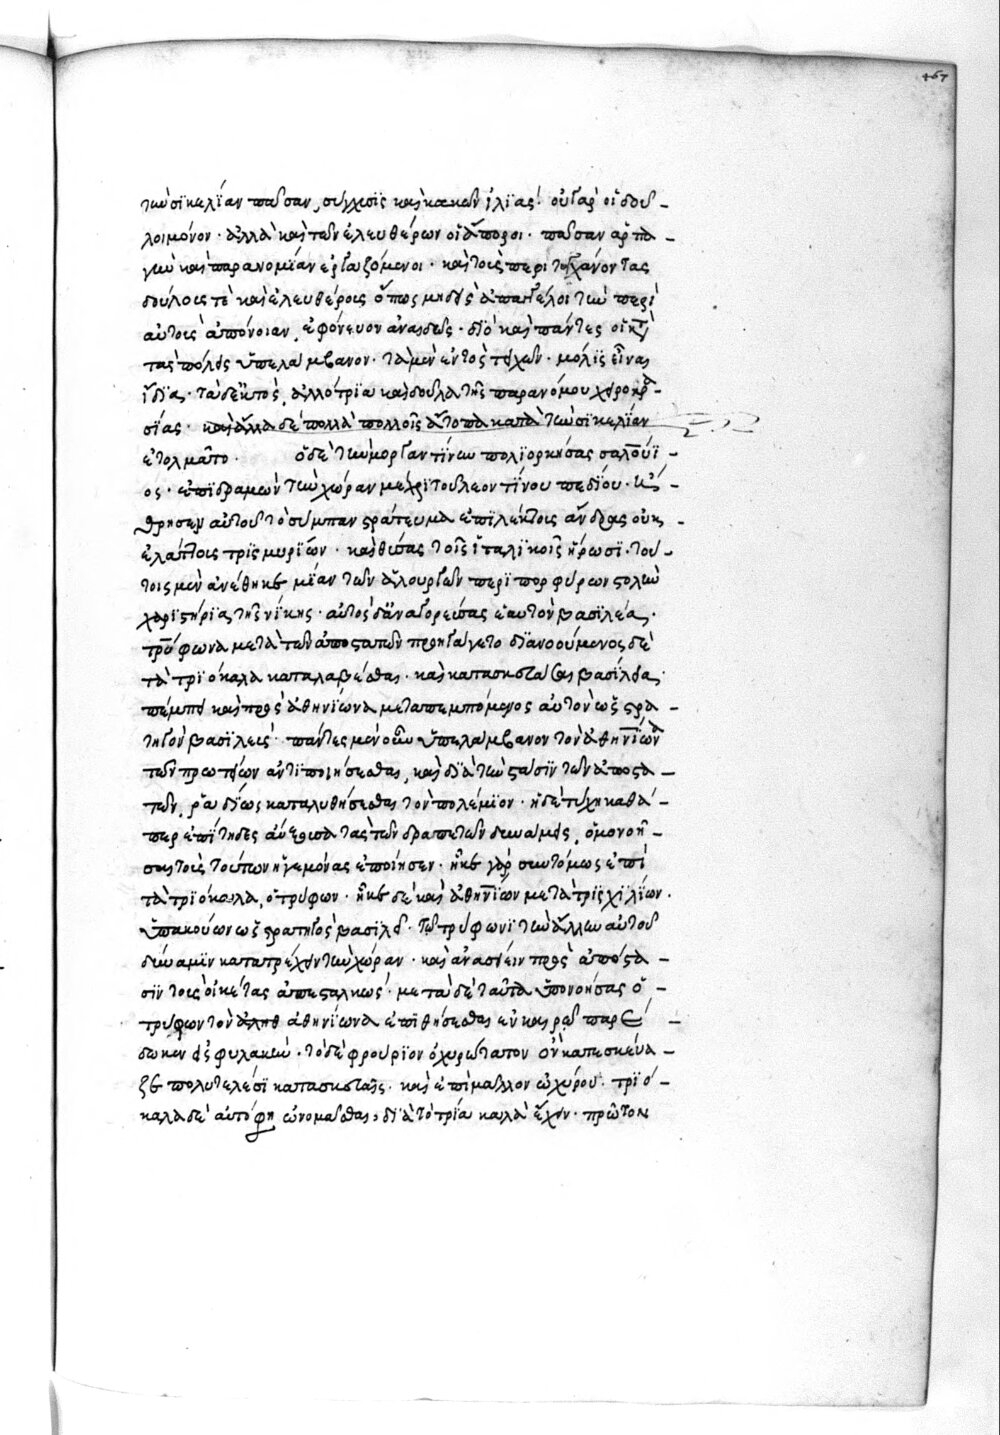 467
τὴν σϊκελΐαν πᾶσαν, σύγχυσϊς καὶ κακῶν ἰλϊὰς! οὐ γὰρ οἱ δοῦ -
λοι μόνον · ἀλλὰ καὶ τῶν ἐλευθέρων οἱ ἄποροι · πᾶσαν ἁρπα -
γὴν καὶ παρανομΐαν εἰργάζοντο · καὶ τοὺς περιτυγχάνοντας
δούλους τὲ καὶ ἐλευθέρους ὅπως μηδεὶς ἀπαγγέλοι τὴν περὶ
αὐτοὺς ἀπόνοιαν, ἐφόνευον ἀναιδῶς · διὸ καὶ πάντες οἱ κατὰ
τὰς πόλεις ὑπελάμβανον · τὰ μὲν ἐντὸς τειχῶν · μόλϊς εἶναι
ἴδϊα · τὰ δὲ ἐκτὸς, ἀλλότρϊα καὶ δοῦλα τῆς παρανόμου χειροκρα -
σΐας · καὶ ἄλλα δὲ πολλὰ πολλοῖς ἄτοπα κατὰ τὴν σϊκελΐαν
ἐτολμᾶτο · ὁ δὲ τὴν μοργαντΐνην πολϊορκήσας σαλούϊ -
ος · ἐπϊδραμὼν τὴν χώραν μέχρϊ τοῦ λεοντΐνου πεδΐου ·
θροισεν αὐτοῦ τὸ σύμπαν στράτευμα ἐπϊλέκτους ἄνδρας οὐκ -
ἐλάττους τρϊσμυρΐων · καὶ θύσας τοῖς ἰταλϊκοῖς ἥρωσϊ · τού -
τοις μὲν ἀνέθηκε μΐαν τῶν ἁλουργῶν περϊπορφύρων στολὴν
χαρϊστήρϊα τῆς νΐκης · αὐτὸς δ' ἀναγορεύσας ἑαυτὸν βασιλέα ·
τρύφωνα μετὰ τῶν ἀποστατῶν προσηγάγετο διανοούμενος δὲ
τὰ τρϊόκαλα καταλαβέσθαι · καὶ κατασκευάσαι βασΐλεια ·
πέμπει καὶ πρὸς ἀθηνΐωνα μεταπεμπόμενος αὐτὸν ὡς στρα -
τηγὸν βασϊλεὺς · πάντες μὲν οὖν ὑπελάμβανον τὸν ἀθηνΐωνα
τῶν πρωτείων ἀντϊποιήσεσθαι, καὶ διὰ τὴν στάσϊν τῶν ἀποστα -
τῶν, ῥαδΐως καταλυθήσεσθαι τὸν πόλεμϊον · ἡ δὲ τύχη καθά -
περ ἐπΐτηδες αὔξουσα τὰς τῶν δραπετῶν δυνάμεις, ὁμονοῆ -
σαι τοὺς τούτων ἡγεμόνας ἐποίησεν · ἧκε γὰρ συντόμως ἐπὶ
τὰ τρϊόκαλα, ὁ τρύφων · ἧκε δὲ καὶ ἀθηνΐων μετὰ τρϊσχϊλΐων ·
ὑπακούων ὡς στρατηγὸς βασϊλεῖ · τῷ τρύφωνϊ τὴν ἄλλην αὐτοῦ
δύναμϊν κατατρέχειν τὴν χώραν · καὶ ἀνασείειν πρὸς ἀπόστα -
σϊν τοὺς οἰκέτας ἀπεσταλκὼς · μετὰ δὲ ταῦτα ὑπονοήσας ὁ -
τρύφων τὸν ἀθηνΐωνα ἐπϊθήσεσθαι ἐν καιρῷ παρέ -
δωκεν εἰς φυλακὴν · τὸ δὲ φρούρϊον ὀχυρώτατον ὂν κατεσκεύα -
ζε πολυτελέσϊ κατασκευαῖς · καὶ ἐπϊμᾶλλον ὠχύρου · τρϊό -
καλα δὲ αὐτό φη ὠνομᾶσθαι, διὰ τὸ τρΐα καλὰ ἔχειν · πρῶτον